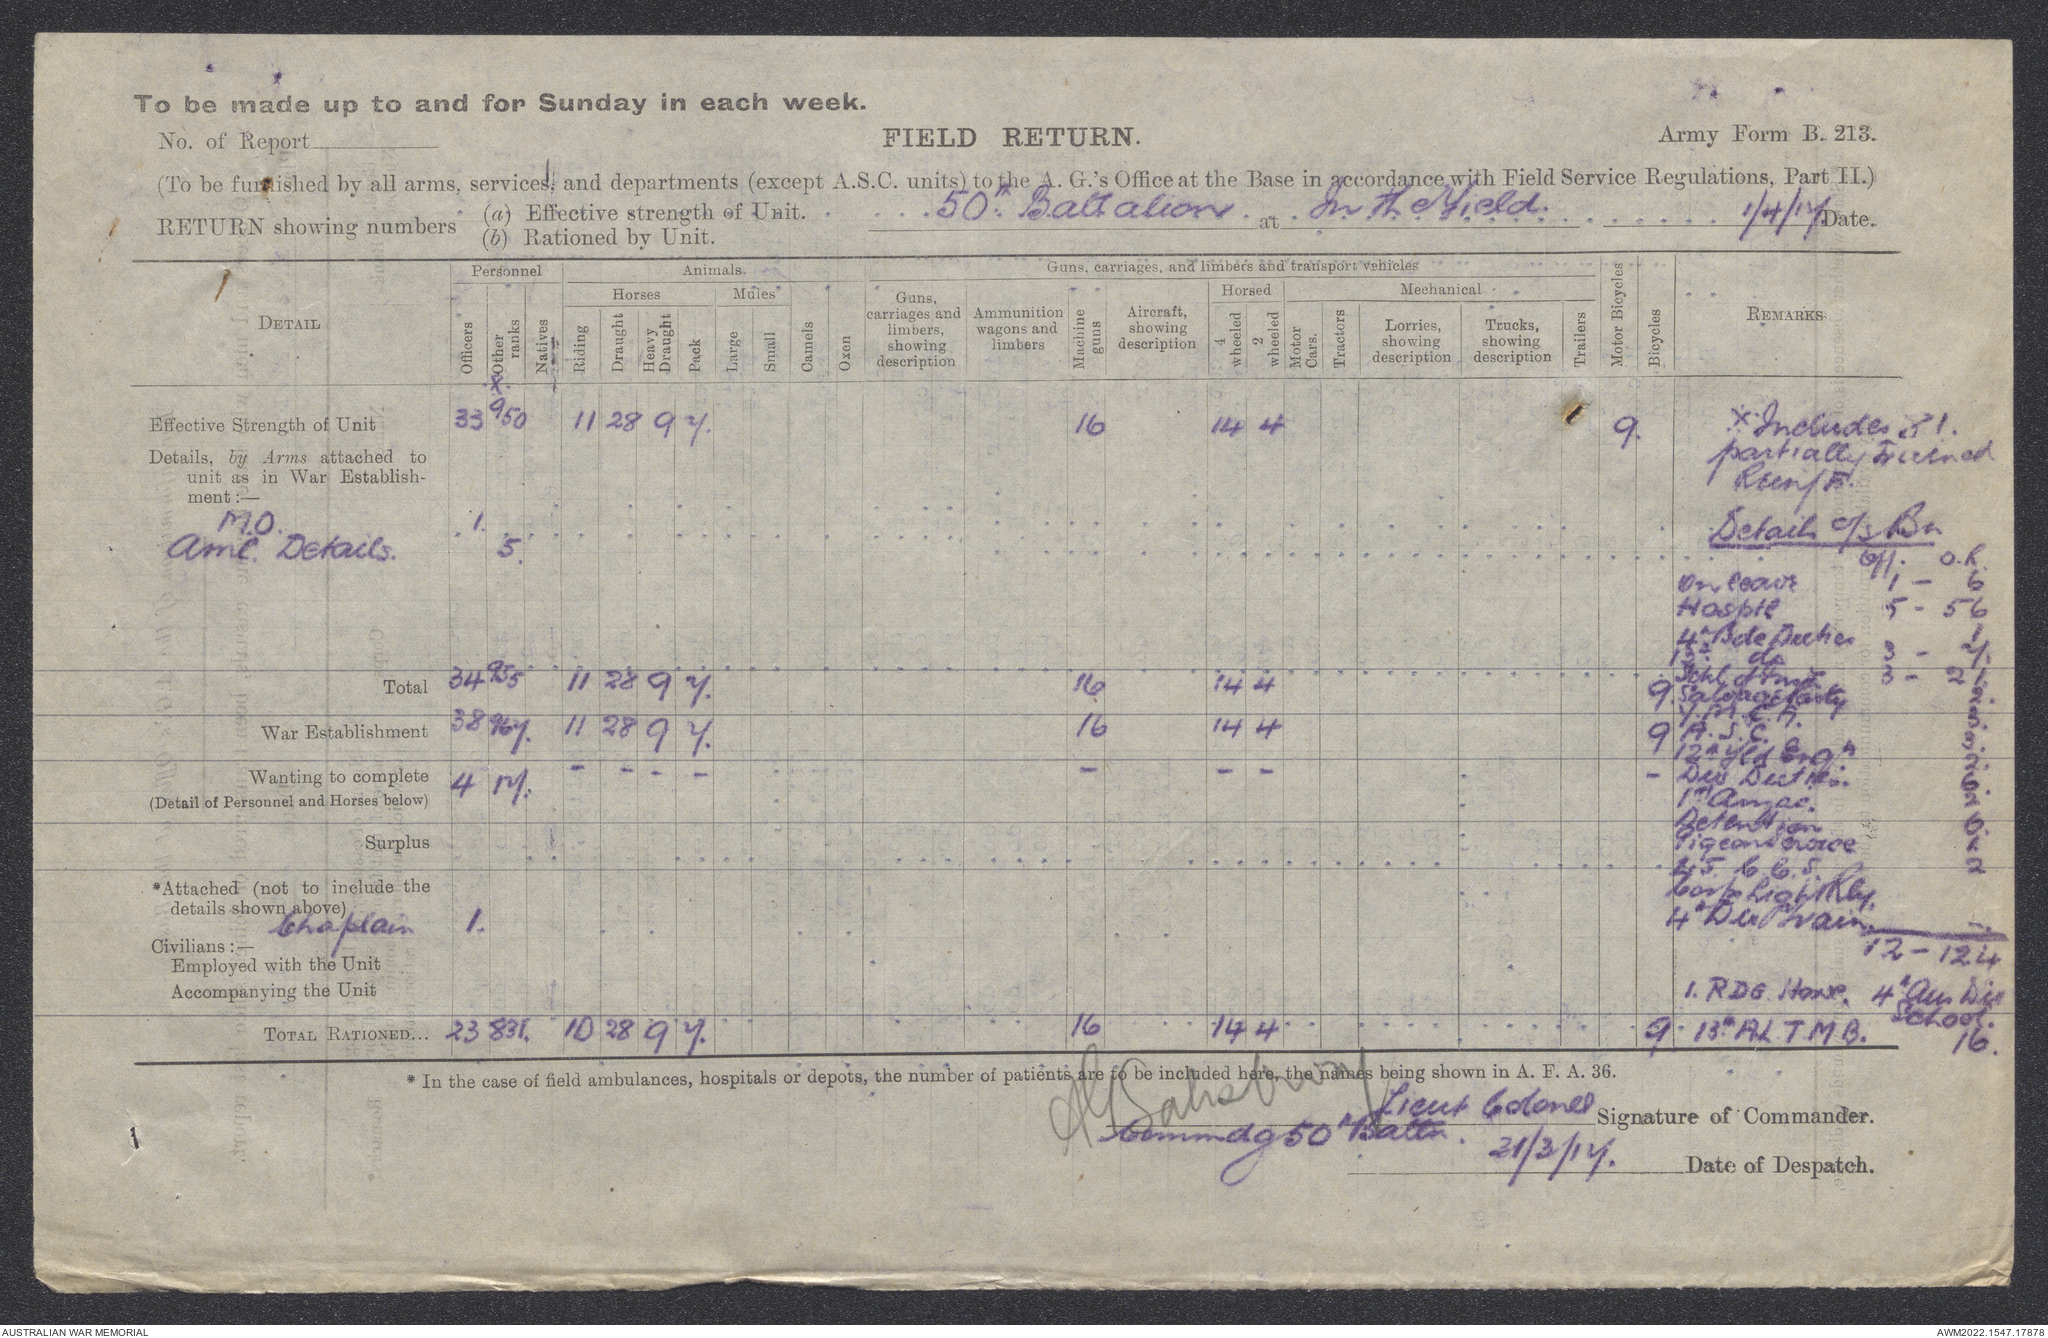 To be made up to and for Sunday in each week.
No. of Report
FIELD RETURN.
Army Form B. 213.
(To be furnished by all arms, services, and departments (except A.S.C. units) to the A. G.'s Office at the Base in accordance with Field Service Regulations, Part II.)
RETURN showing numbers
(a) Effective strength of Unit.
(b) Rationed by Unit.
50th Battalion at In the Field. 1/4/17 Date.
DETAIL
Personnel
Animals
Guns, carriages, and limbers and transport vehicles
Motor Bicycles
Bicycles
REMARKS
Horses
Mules
Horsed
Mechanical
Officers
Other ranks
Natives
Riding
Draught
Heavy Draught
Pack
Large
Small
Camels
Oxen
Guns, carriages and limbers, showing description
Ammunition wagons and limbers
Machine guns
Aircraft, showing description
4 wheeled
2 wheeled
Motor Cars.
Tractors
Lorries, showing description
Trucks, showing description
Trailers
x
Effective Strength of Unit 33 950 11 28 9 7. 16 14 4 9.
x Includes
partially Trained
Reinfts.
Details, by Arms attached to
unit as in War Establish-
ment :—
M.O. 1.
Details. 5.
Details o/s Bn
Off. O.R.
On leave 1 - 6
Hosptl 5 - 56
4th Bde Duties
do 3 -
3 - 2
Salvage Party
Y.M.C.A.
A.S.C.
12th Fld Eng
Div Duties.
1st Anzac.
Detention
Pigeon Service
C.C.S.
Corps Light Rly.
4th Div Train.
12 - 124
Total 34 955 11 28 9 7. 16 14 4 9.
War Establishment 38 967. 11 28 9 7. 16 14 4 9
Wanting to complete 4 17. - - - - - - - -
(Detail of Personnel and Horses below)
Surplus
*Attached (not to include the
details shown above)
Chaplain 1.
Civilians :—
Employed with the Unit
Accompanying the Unit
1. RDG Horse. 4th Aus Div
School.
TOTAL RATIONED... 23 831. 10 28 9 7. 16 14 4 9
13th A.L.T.M.B. 16.
* In the case of field ambulances, hospitals or depots, the number of patients are to be included here, the names being shown in A. F. A. 36.
Lieut Colonel Signature of Commander.
Commdg 50th Battn.
31/3/17. Date of Despatch.
AUSTRALIAN WAR MEMORIAL
AWM2022.1547.17878